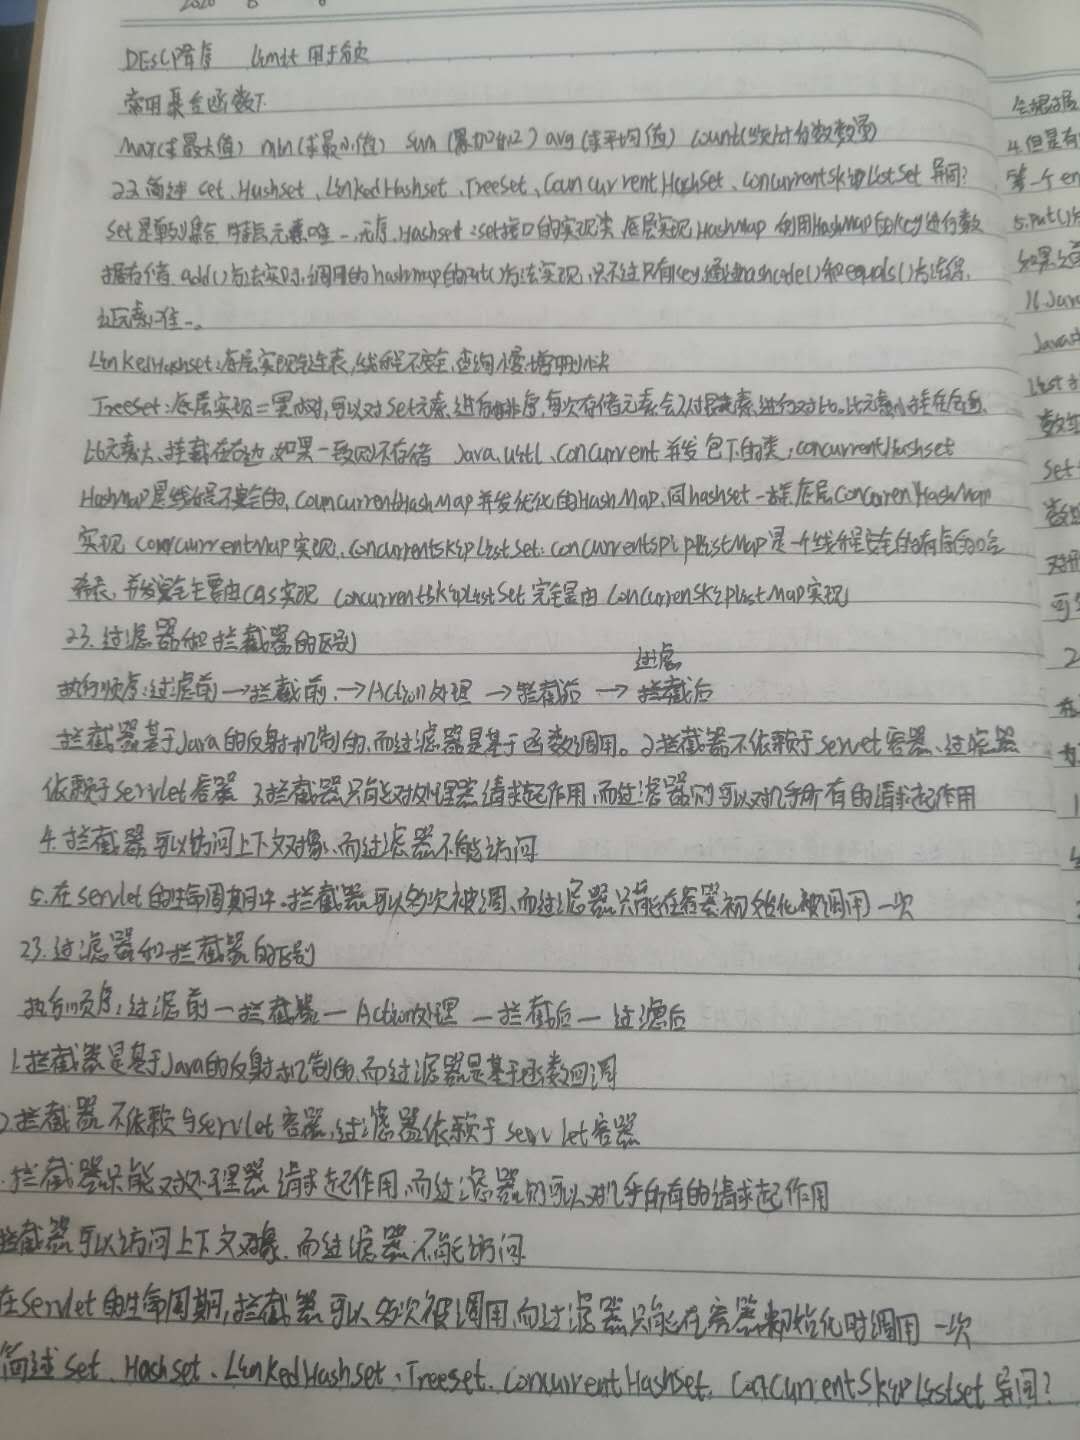 2020 8
DESC降序 limit 用于分页
常用聚合函数下
max(求最大值) min(求最小值) sum(累加和) avg(求平均值) count(统计分数数量)
22.简述 set、Hashset、LinkedHashset、TreeSet、Councurrent HashSet、ConcurrentSkipListSet 异同?
Set是单列集合 特点元素唯一、无序、Hashset:set接口的实现类 底层实现HashMap 利用HashMap的key进行数
据存储 add()方法实现,调用的hashmap的put()方法实现,只不过只有key,通过hashcode()和equals()方法保
证元素唯一。
LinkedHashset:底层实现链表,线程不安全,查询慢增删快
TreeSet:底层实现二叉树,可以对Set元素进行排序,每次存储元素会对元素进行对比。比元素小挂在左边,
比元素大、挂载在右边,如果一致则不存储 Java.util.Concurrent并发包下的类:concurrentHashset
HashMap是线程不安全的,CouncurrentHashMap并发优化的HashMap、同hashset一样底层ConcurrenHashMap
实现 ConrcurrentMap实现、ConcurrentSkipListSet:concurrentSpipListMap是一个线程安全的有序的哈
希表,并发安全主要由CAS实现 ConcurrentSkipListSet完全是由ConcurrenSkipListMap实现
23.过滤器和拦截器的区别
过滤
执行顺序:过滤前→拦截前→Action处理→拦截后→拦截后
拦截器基于Java的反射机制的,而过滤器是基于函数调用。2拦截器不依赖于servet容器、过滤器
依赖于servlet容器 3拦截器只能对处理器请求起作用,而过滤器则可以对几乎所有的请求起作用
4.拦截器可以访问上下文对象、而过滤器不能访问
5.在servlet的生命周期中,拦截器可以多次被调、而过滤器只能在容器初始化被调用一次
23.过滤器和拦截器的区别
执行顺序:过滤前—拦截器—Action处理—拦截后—过滤后
1.拦截器是基于Java的反射机制的,而过滤器是基于函数回调
2拦截器不依赖与servlet容器,过滤器依赖于servlet容器
.拦截器只能对处理器请求起作用,而过滤器则可以对几乎所有的请求起作用
拦截器可以访问上下文对象、而过滤器不能访问
在servlet的生命周期,拦截器可以多次被调用,而过滤器只能在容器初始化时调用一次
简述set、Hashset、LinkedHashset、Treeset、ConcurrentHashSet、ConCurrentSkipListset异同?
会根据
4.但是有
第一个en
5.put()
如果
16.Java
Java
List
数组
Set